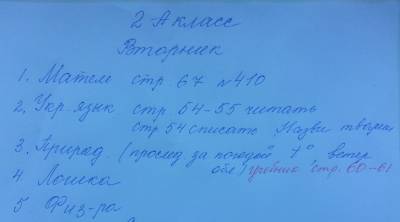 2-А класс
Вторник
1. Матем стр. 67 №410
2. Укр. язык. стр. 54-55 читать
стр 54 списать Назви тварин
3. Природ. (прослед за погодой t° ветер
обл.) учебник стр. 60-61
4 Логика
5 Физ-ра